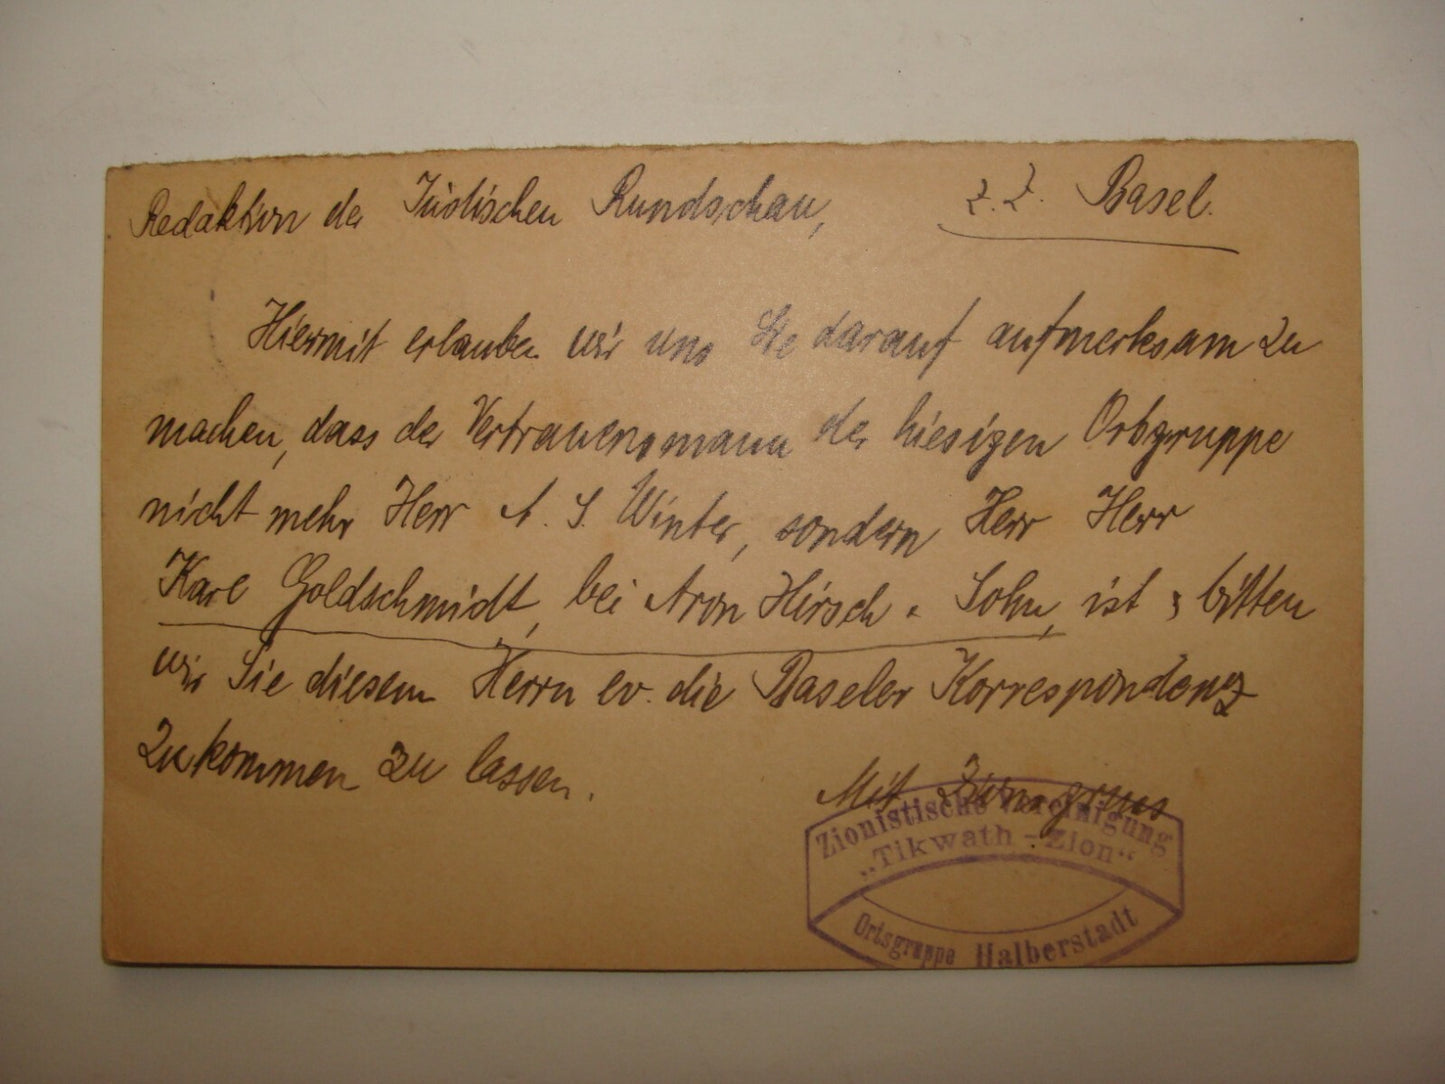 Redaktion der Jüdischen Rundschau, z. Z. Basel.
Hiermit erlauben wir uns Sie darauf aufmerksam zu
machen, dass der Vertrauensmann der hiesigen Ortsgruppe
nicht mehr Herr A. S. Winter, sondern Herr Herr
Karl Goldschmidt, bei Aron Hirsch & Sohn, ist & bitten
wir Sie diesem Herrn ev. die Baseler Korrespondenz
zukommen zu lassen.
Mit Zionsgruss
Zionistische Vereinigung
„Tikwath - Zion“
Ortsgruppe Halberstadt